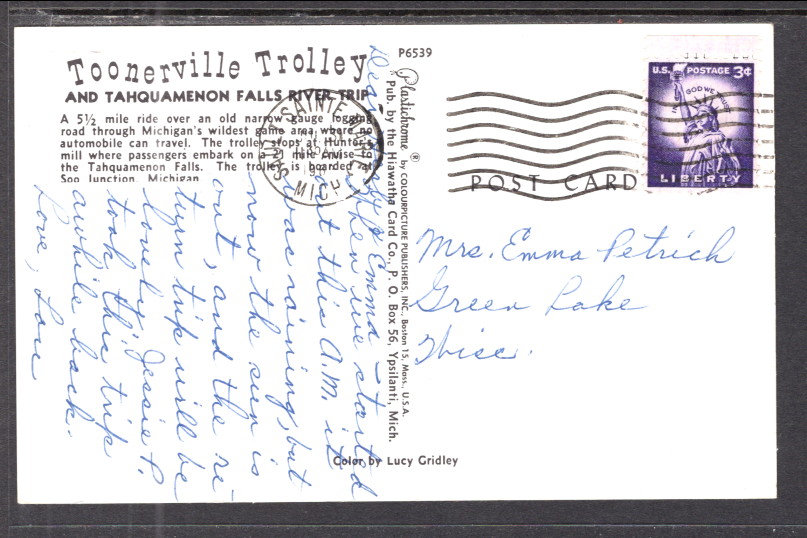 Toonerville Trolley
AND TAHQUAMENON FALLS RIVER TRIP
A 5½ mile ride over an old narrow gauge logging
road through Michigan's wildest game area where no
automobile can travel. The trolley stops at Hunter's
mill where passengers embark on a 21 mile cruise to
the Tahquamenon Falls. The trolley is boarded at
Soo Junction, Michigan
P6539
Plastichrome ® by COLOURPICTURE PUBLISHERS, INC., Boston 15, Mass., U.S.A.
Pub. by the Hiawatha Card Co., P. O. Box 56, Ypsilanti, Mich.
Color by Lucy Gridley
POST CARD
U.S. POSTAGE 3¢
IN GOD WE TRUST
LIBERTY
SAULT SAINTE MARIE
MICH
Dear Emma –
When we started
out this A.M. it
was raining, but
now the sun is
out, and the re-
turn trip will be
lovely. Jessie P.
took this trip
awhile back.
Love, Lou
Mrs. Emma Petrich
Green Lake
Wisc.